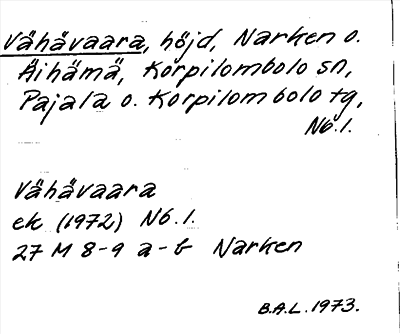 Vähävaara, höjd, Narken o.
Äihämä, Korpilombolo sn,
Pajala o. Korpilombolo tg,
Nb.l.
Vähävaara
ek (1972) Nb.l.
27 M 8-9 a-b Narken
B.A.L. 1973.